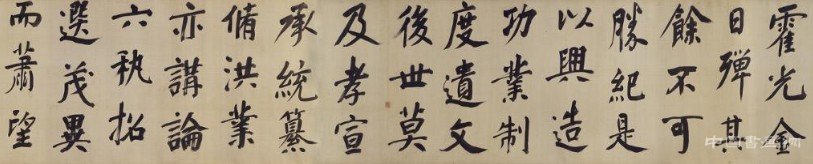 霍光金
日磾其
餘不可
勝紀是
以興造
功業制
度遺文
後世莫
及孝宣
承統纂
脩洪業
亦講論
六秇招
選茂異
而蕭望